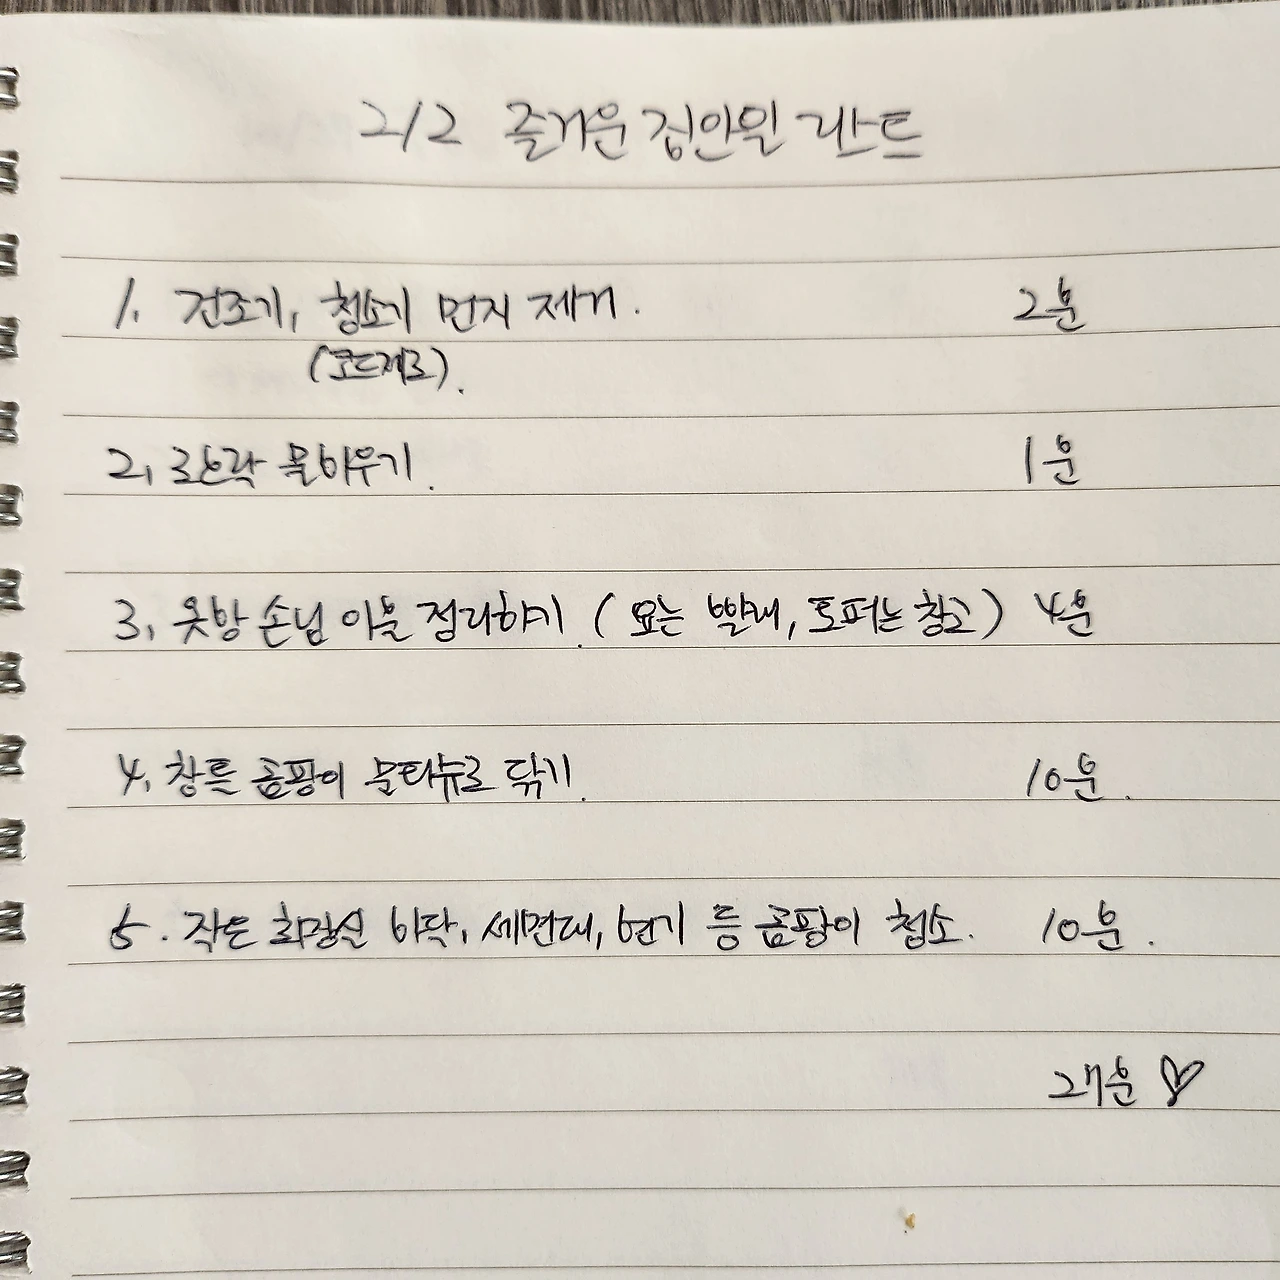 2/2 즐거운 집안일 리스트
1. 건조기, 청소기 먼지 제거. 2분
(코드제로).
2. 로보락 물비우기. 1분
3. 옷방 손님 이불 정리하기. (요는 빨래, 토퍼는 창고) 4분
4. 창틀 곰팡이 물티슈로 닦기. 10분.
5. 작은 화장실 바닥, 세면대, 변기 등 곰팡이 청소. 10분.
27분 ♡